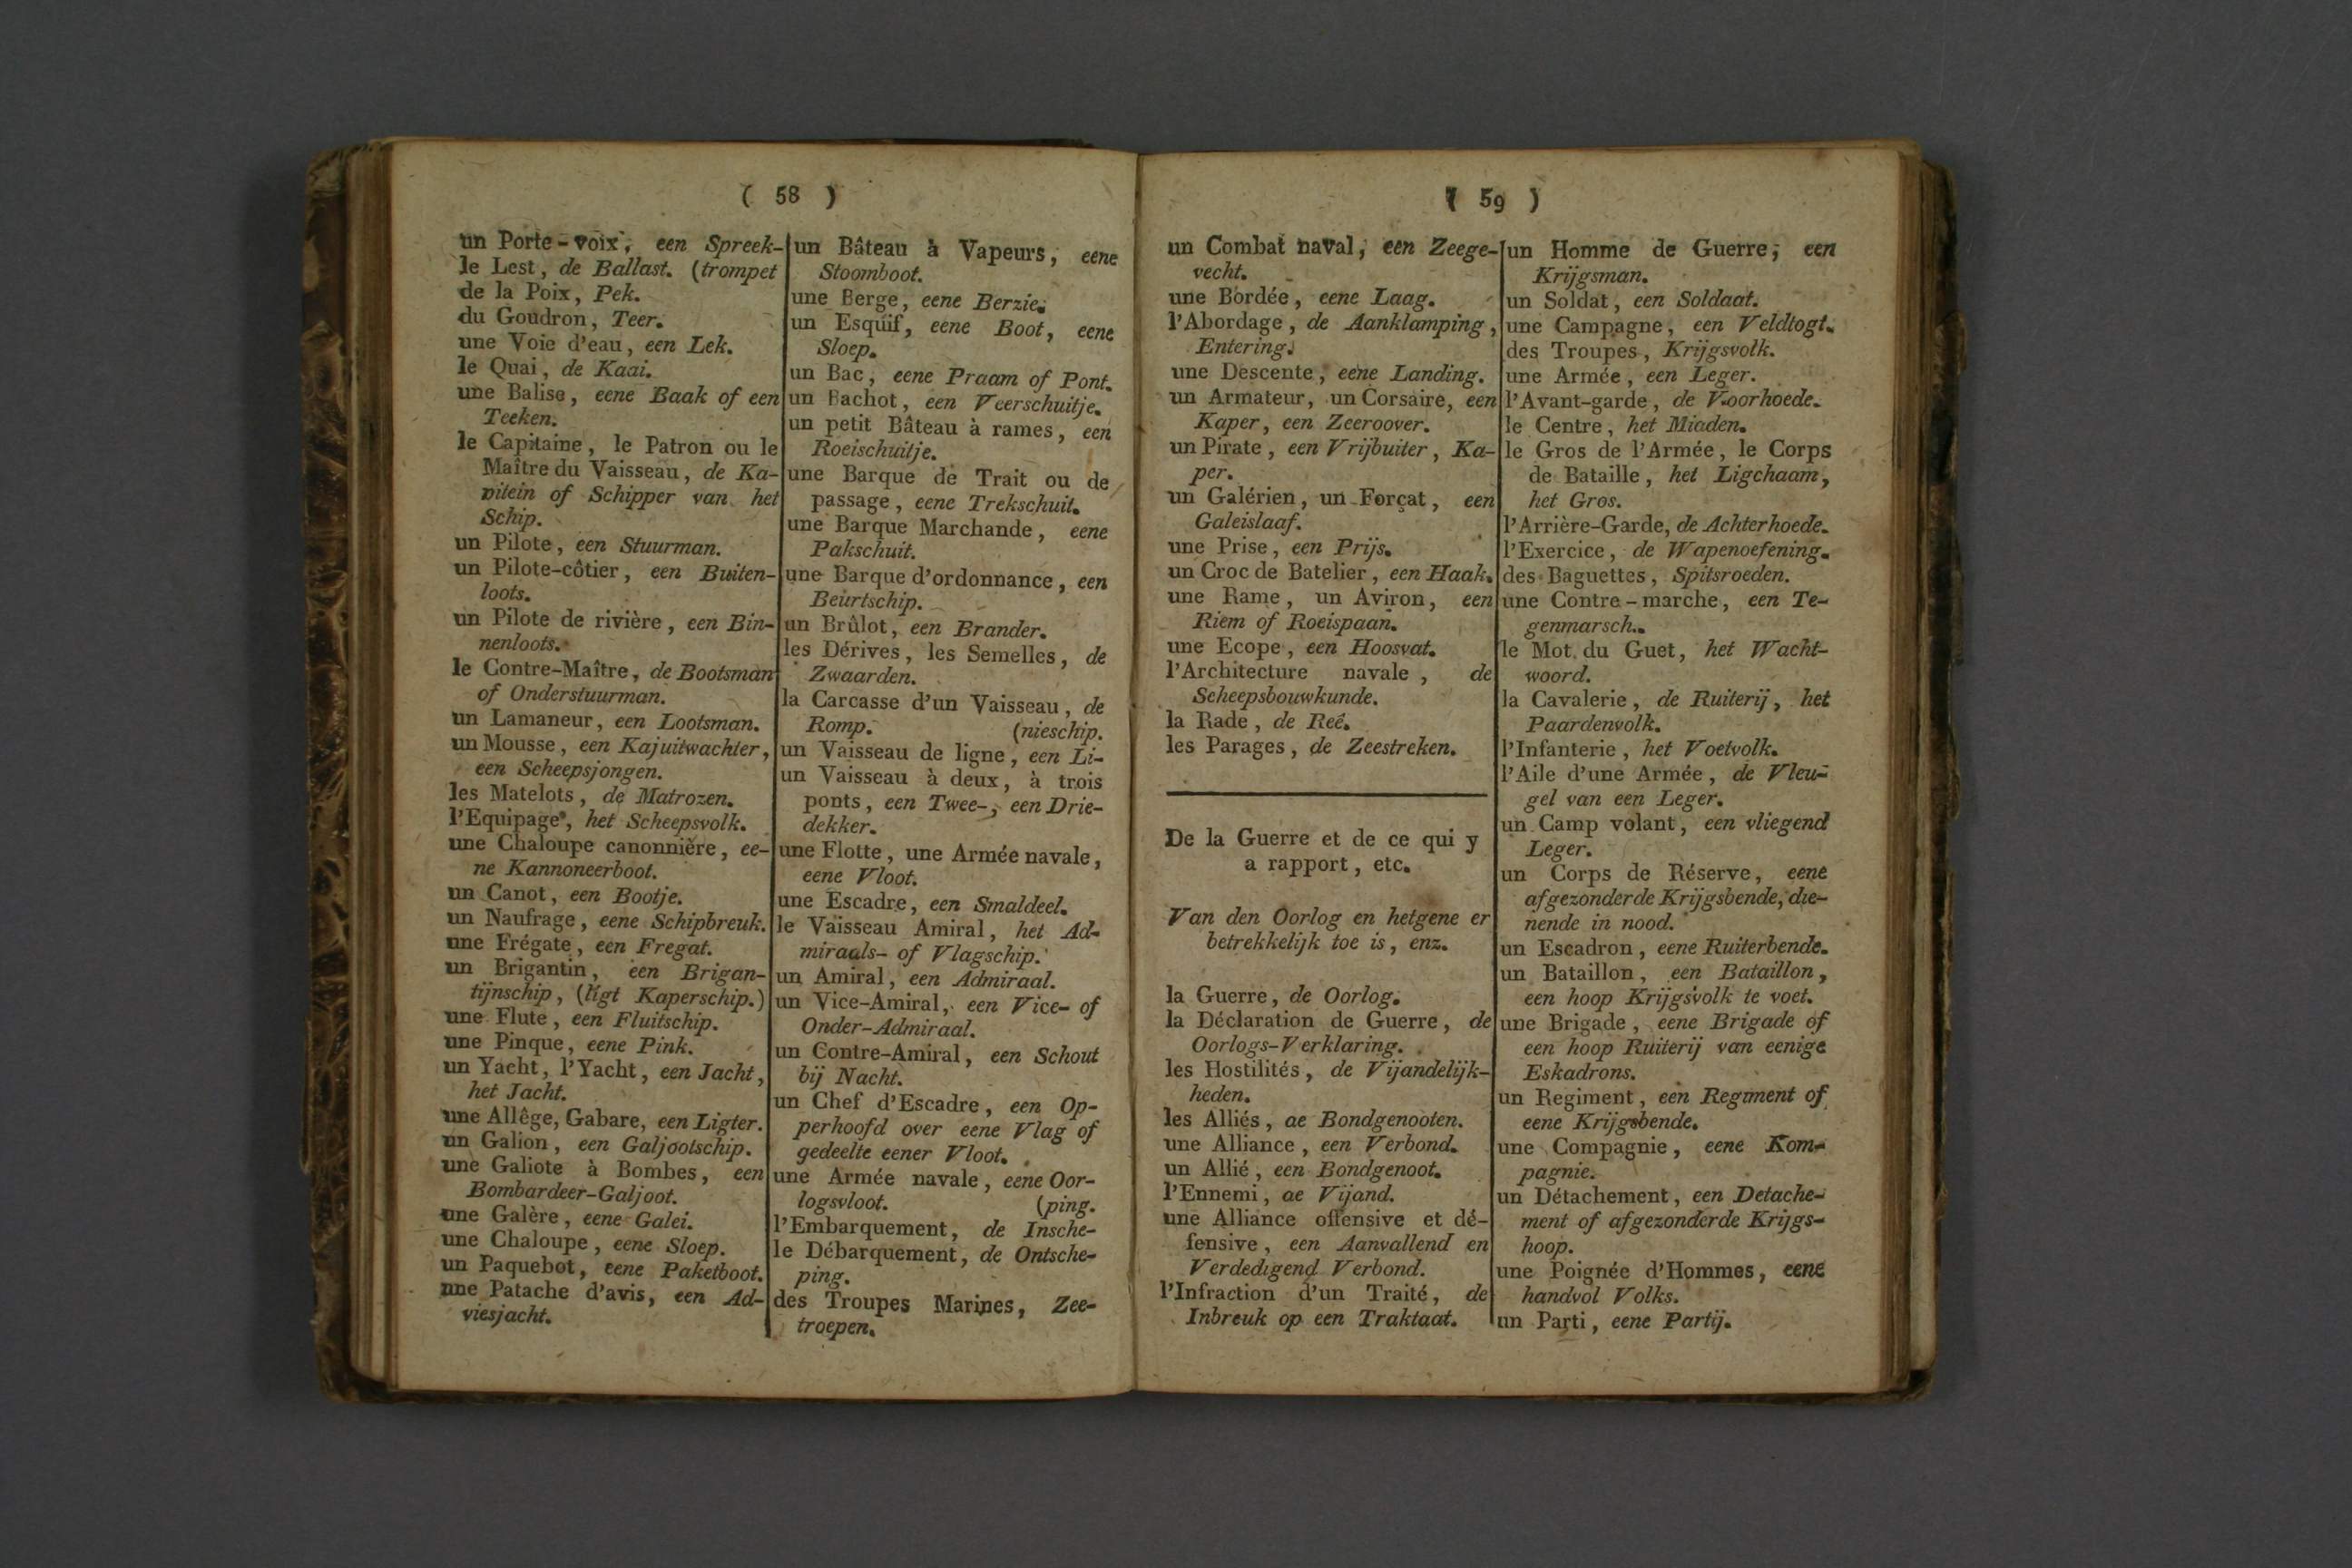 ( 58 )
un Porte-voix, een Spreek-
le Lest, de Ballast. (trompet
de la Poix, Pek.
du Goudron, Teer.
une Voie d'eau, een Lek.
le Quai, de Kaai.
une Balise, eene Baak of een
Teeken.
le Capitaine, le Patron ou le
Maître du Vaisseau, de Ka-
pitein of Schipper van het
Schip.
un Pilote, een Stuurman.
un Pilote-côtier, een Buiten-
loots.
un Pilote de rivière, een Bin-
nenloots.
le Contre-Maître, de Bootsman
of Onderstuurman.
un Lamaneur, een Lootsman.
un Mousse, een Kajuitwachter,
een Scheepsjongen.
les Matelots, de Matrozen.
l'Equipage, het Scheepsvolk.
une Chaloupe canonnière, ee-
ne Kannoneerboot.
un Canot, een Bootje.
un Naufrage, eene Schipbreuk.
une Frégate, een Fregat.
un Brigantin, een Brigan-
tijnschip, (ligt Kaperschip.)
une Flute, een Fluitschip.
une Pinque, eene Pink.
un Yacht, l'Yacht, een Jacht,
het Jacht.
une Allêge, Gabare, een Ligter.
un Galion, een Galjootschip.
une Galiote à Bombes, een
Bombardeer-Galjoot.
une Galère, eene Galei.
une Chaloupe, eene Sloep.
un Paquebot, eene Paketboot.
une Patache d'avis, een Ad-
viesjacht.
un Bâteau à Vapeurs, eene
Stoomboot.
une Berge, eene Berzie.
un Esquif, eene Boot, eene
Sloep.
un Bac, eene Praam of Pont.
un Bachot, een Veerschuitje.
un petit Bâteau à rames, een
Roeischuitje.
une Barque de Trait ou de
passage, eene Trekschuit.
une Barque Marchande, eene
Pakschuit.
une Barque d'ordonnance, een
Beurtschip.
un Brûlot, een Brander.
les Dérives, les Semelles, de
Zwaarden.
la Carcasse d'un Vaisseau, de
Romp. (nieschip.
un Vaisseau de ligne, een Li-
un Vaisseau à deux, à trois
ponts, een Twee-, een Drie-
dekker.
une Flotte, une Armée navale,
eene Vloot.
une Escadre, een Smaldeel.
le Vaisseau Amiral, het Ad-
miraals- of Vlagschip.
un Amiral, een Admiraal.
un Vice-Amiral, een Vice- of
Onder-Admiraal.
un Contre-Amiral, een Schout
bij Nacht.
un Chef d'Escadre, een Op-
perhoofd over eene Vlag of
gedeelte eener Vloot.
une Armée navale, eene Oor-
logsvloot. (ping.
l'Embarquement, de Insche-
le Débarquement, de Ontsche-
ping.
des Troupes Marines, Zee-
troepen.
( 59 )
un Combat naval, een Zeege-
vecht.
une Bordée, eene Laag.
l'Abordage, de Aanklamping,
Entering.
une Descente, eene Landing.
un Armateur, un Corsaire, een
Kaper, een Zeeroover.
un Pirate, een Vrijbuiter, Ka-
per.
un Galérien, un Forçat, een
Galeislaaf.
une Prise, een Prijs.
un Croc de Batelier, een Haak.
une Rame, un Aviron, een
Riem of Roeispaan.
une Ecope, een Hoosvat.
l'Architecture navale, de
Scheepsbouwkunde.
la Rade, de Reê.
les Parages, de Zeestreken.
De la Guerre et de ce qui y
a rapport, etc.
Van den Oorlog en hetgene er
betrekkelijk toe is, enz.
la Guerre, de Oorlog.
la Déclaration de Guerre, de
Oorlogs-Verklaring.
les Hostilités, de Vijandelijk-
heden.
les Alliés, ae Bondgenooten.
une Alliance, een Verbond.
un Allié, een Bondgenoot.
l'Ennemi, ae Vijand.
une Alliance offensive et dé-
fensive, een Aanvallend en
Verdedigend Verbond.
l'Infraction d'un Traité, de
Inbreuk op een Traktaat.
un Homme de Guerre, een
Krijgsman.
un Soldat, een Soldaat.
une Campagne, een Veldtogt.
des Troupes, Krijgsvolk.
une Armée, een Leger.
l'Avant-garde, de Voorhoede.
le Centre, het Miaden.
le Gros de l'Armée, le Corps
de Bataille, het Ligchaam,
het Gros.
l'Arrière-Garde, de Achterhoede.
l'Exercice, de Wapenoefening.
des Baguettes, Spitsroeden.
une Contre-marche, een Te-
genmarsch.
le Mot du Guet, het Wacht-
woord.
la Cavalerie, de Ruiterij, het
Paardenvolk.
l'Infanterie, het Voetvolk.
l'Aile d'une Armée, de Vleu-
gel van een Leger.
un Camp volant, een vliegend
Leger.
un Corps de Réserve, eene
afgezonderde Krijgsbende, die-
nende in nood.
un Escadron, eene Ruiterbende.
un Bataillon, een Bataillon,
een hoop Krijgsvolk te voet.
une Brigade, eene Brigade of
een hoop Ruiterij van eenige
Eskadrons.
un Regiment, een Regiment of
eene Krijgsbende.
une Compagnie, eene Kom-
pagnie.
un Détachement, een Detache-
ment of afgezonderde Krijgs-
hoop.
une Poignée d'Hommes, eene
handvol Volks.
un Parti, eene Partij.